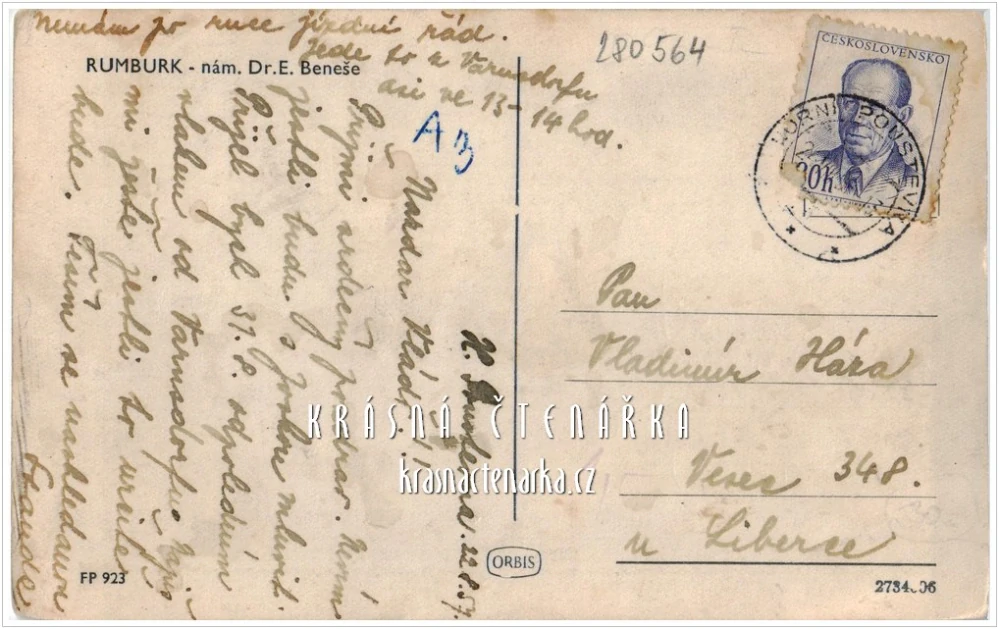 Nemám po ruce jízdní řád.
Jede to z Varnsdorfu
asi ve 13-14 hod.
280564
RUMBURK - nám. Dr. E. Beneše
A3
H. 22.8.57.
Nazdar Vláďo!
Přijmi srdečný pozdrav. Nevím
jestli budu s mluvit.
Přijel bych 31.8. odpoledním
vlakem od Varnsdorfu. Napiš
mi ještě jestli to určitě
bude. Těším se nashledanou
Standa
ČESKOSLOVENSKO
30h
HORNÍ POUSTEVNA
Pan
Vladimír Hára
Vesec 348.
u Liberce
KRÁSNÁ ČTENÁŘKA
krasnactenarka.cz
ORBIS
FP 923